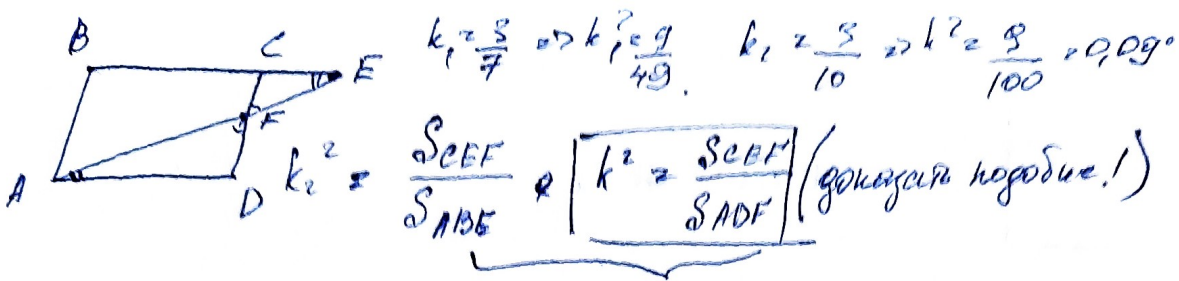 B C E k₁ = 3/7 => k₁² = 9/49. k₁ = 3/10 => k² = 9/100 = 0,09
F
A D k₂² = S_CEF/S_ABE ; k² = S_CEF/S_ADF (доказать подобие!)